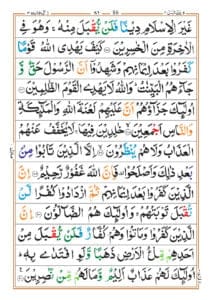 غَيْرَ الْاِسْلَامِ دِيْنًا فَلَنْ يُّقْبَلَ مِنْهُ ۚ وَهُوَ فِى
الْاٰخِرَةِ مِنَ الْخٰسِرِيْنَ كَيْفَ يَهْدِى اللّٰهُ قَوْمًا
كَفَرُوْا بَعْدَ اِيْمَانِهِمْ وَشَهِدُوْۤا اَنَّ الرَّسُوْلَ حَقٌّ وَّ
جَآءَهُمُ الْبَيِّنٰتُ ؕ وَاللّٰهُ لَا يَهْدِى الْقَوْمَ الظّٰلِمِيْنَ
اُولٰٓئِكَ جَزَآؤُهُمْ اَنَّ عَلَيْهِمْ لَعْنَةَ اللّٰهِ وَالْمَلٰٓئِكَةِ
وَالنَّاسِ اَجْمَعِيْنَ خٰلِدِيْنَ فِيْهَا ۚ لَا يُخَفَّفُ عَنْهُمُ
الْعَذَابُ وَلَا هُمْ يُنْظَرُوْنَ اِلَّا الَّذِيْنَ تَابُوْا مِنْۢ
بَعْدِ ذٰلِكَ وَاَصْلَحُوْا فَاِنَّ اللّٰهَ غَفُوْرٌ رَّحِيْمٌ اِنَّ
الَّذِيْنَ كَفَرُوْا بَعْدَ اِيْمَانِهِمْ ثُمَّ ازْدَادُوْا كُفْرًا لَّنْ
تُقْبَلَ تَوْبَتُهُمْ ۚ وَاُولٰٓئِكَ هُمُ الضَّآلُّوْنَ اِنَّ
الَّذِيْنَ كَفَرُوْا وَمَاتُوْا وَهُمْ كُفَّارٌ فَلَنْ يُّقْبَلَ مِنْ
اَحَدِهِمْ مِّلْءُ الْاَرْضِ ذَهَبًا وَّلَوِ افْتَدٰى بِهٖ ؕ
اُولٰٓئِكَ لَهُمْ عَذَابٌ اَلِيْمٌ وَّمَا لَهُمْ مِّنْ نّٰصِرِيْنَ